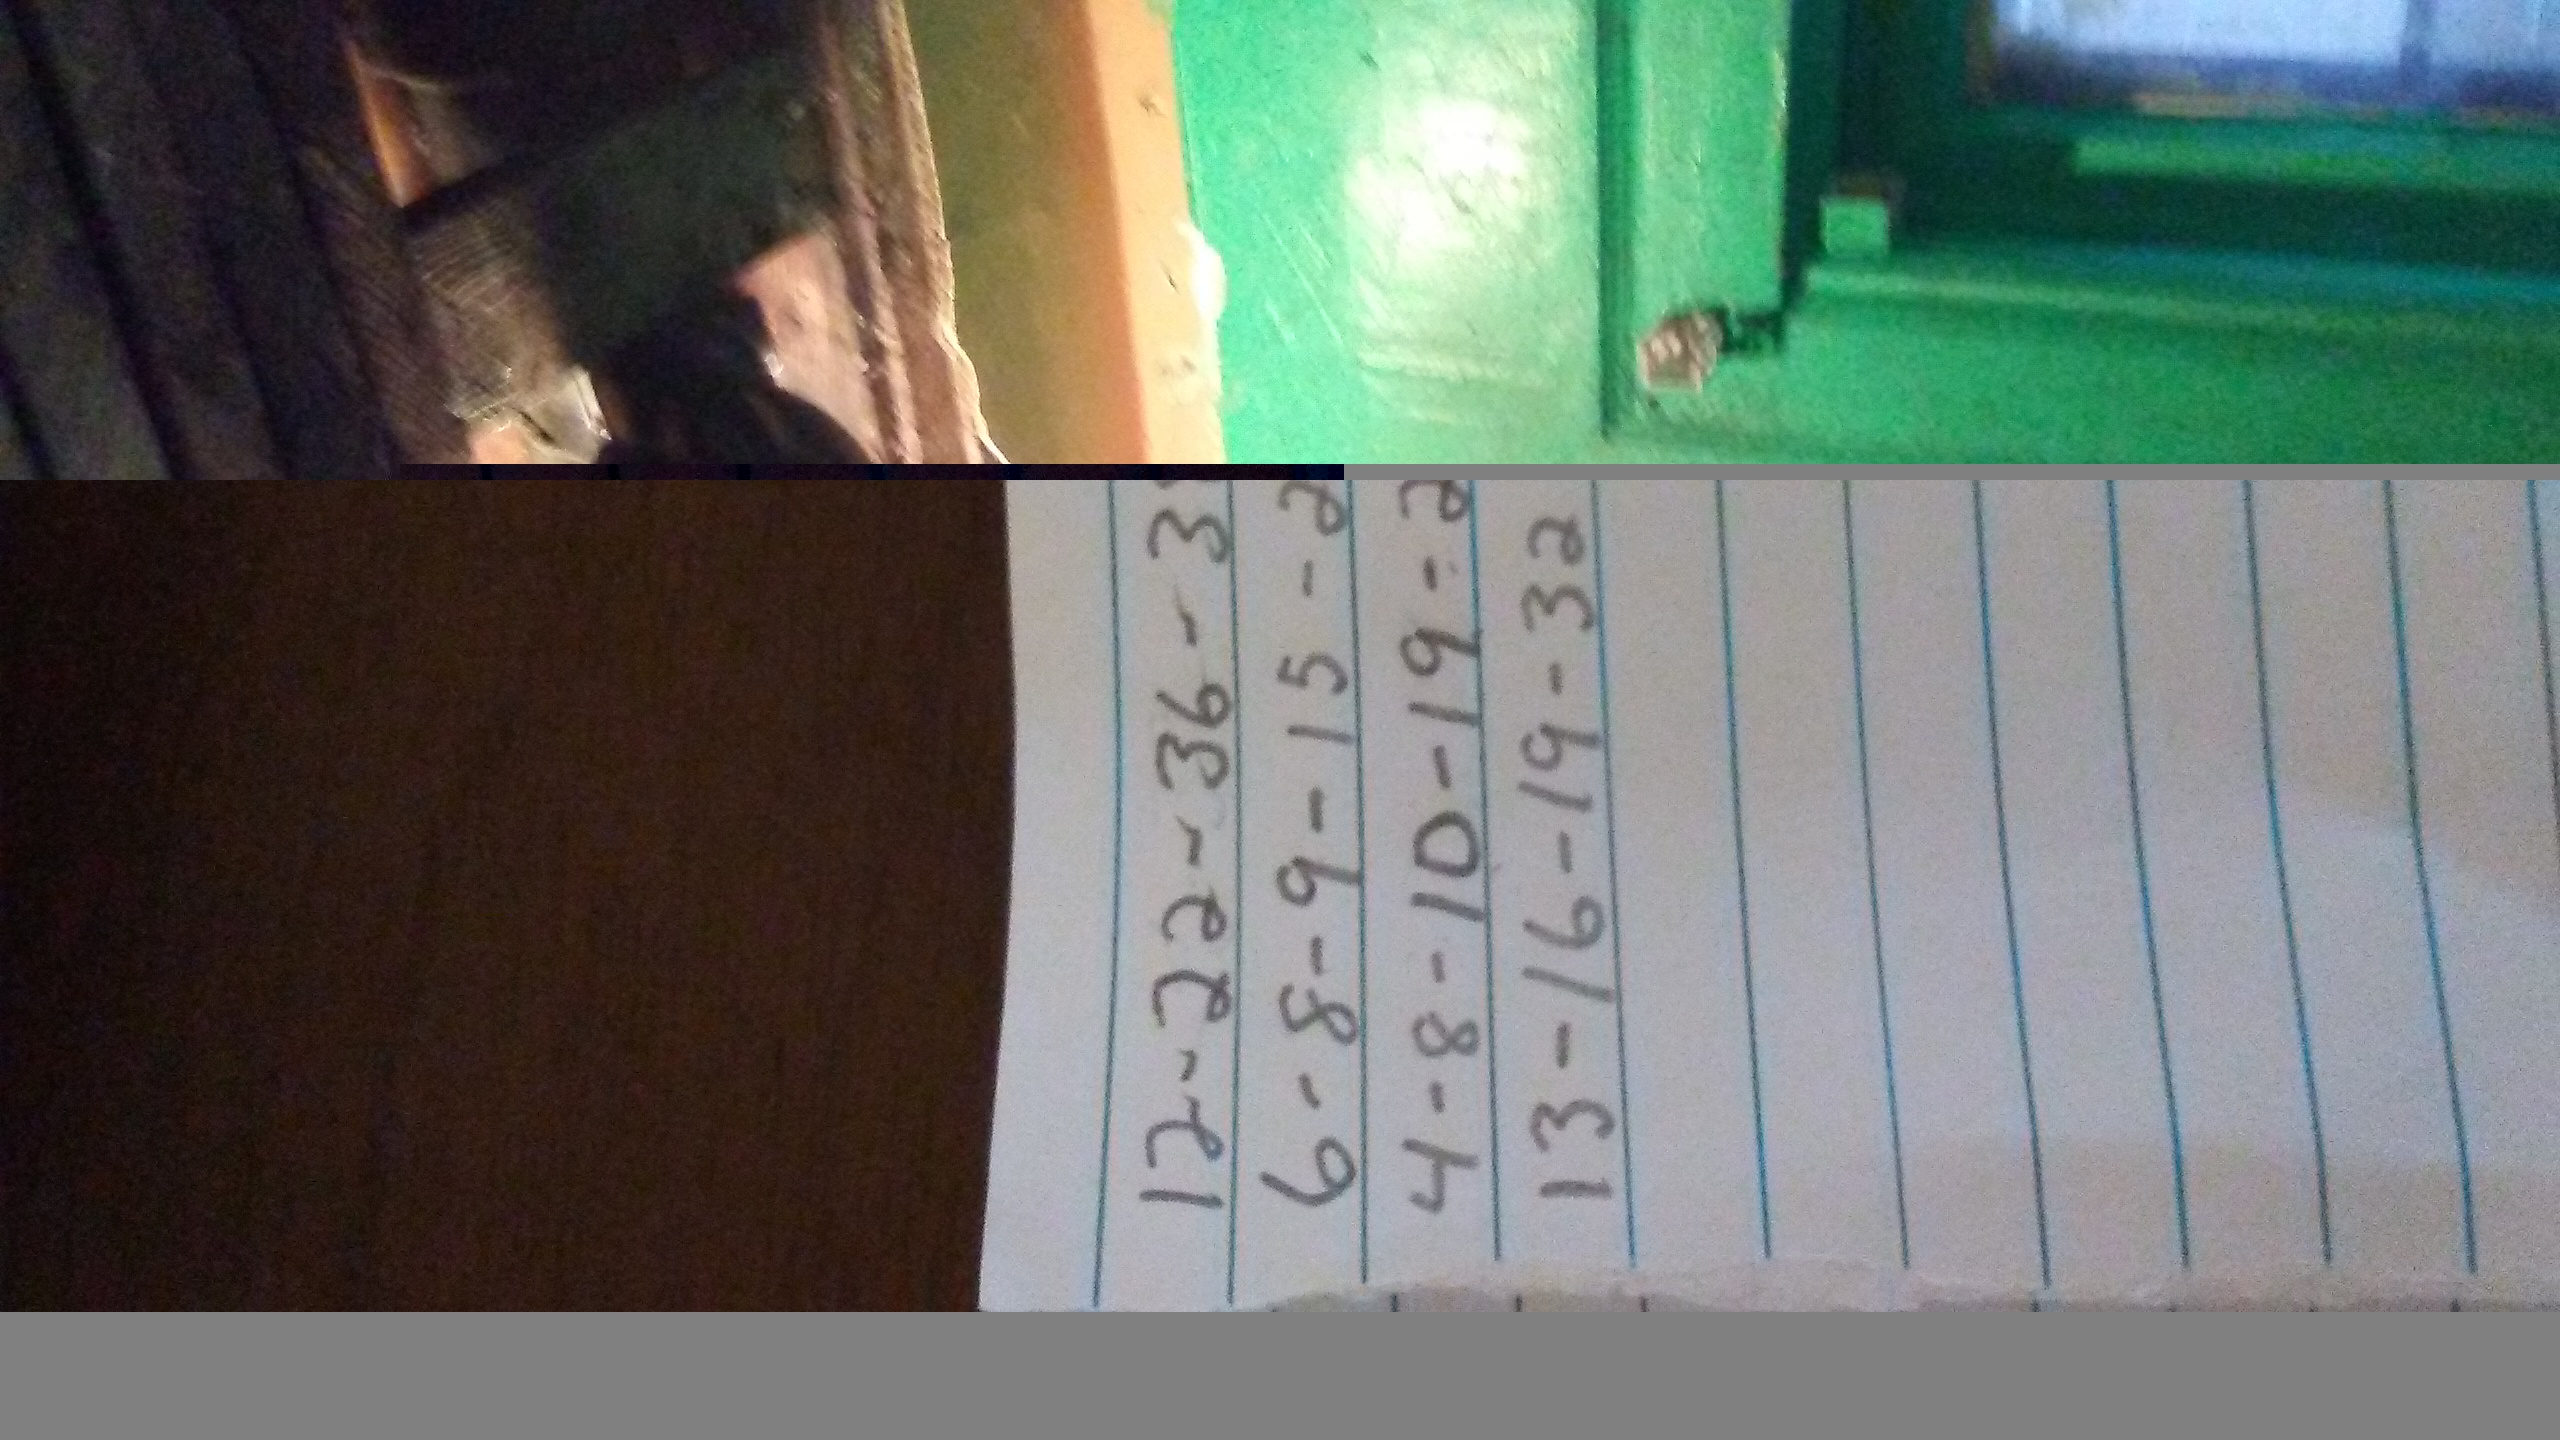 12-22-36-3
6-8-9-15-2
4-8-10-19-2
13-16-19-32